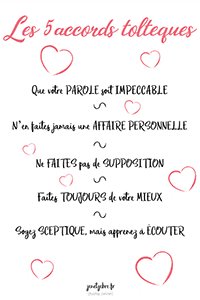 Les 5 accords toltèques
Que votre PAROLE soit IMPECCABLE
N'en faites jamais une AFFAIRE PERSONNELLE
Ne FAITES pas de SUPPOSITION
Faites TOUJOURS de votre MIEUX
Soyez SCEPTIQUE, mais apprenez à ÉCOUTER